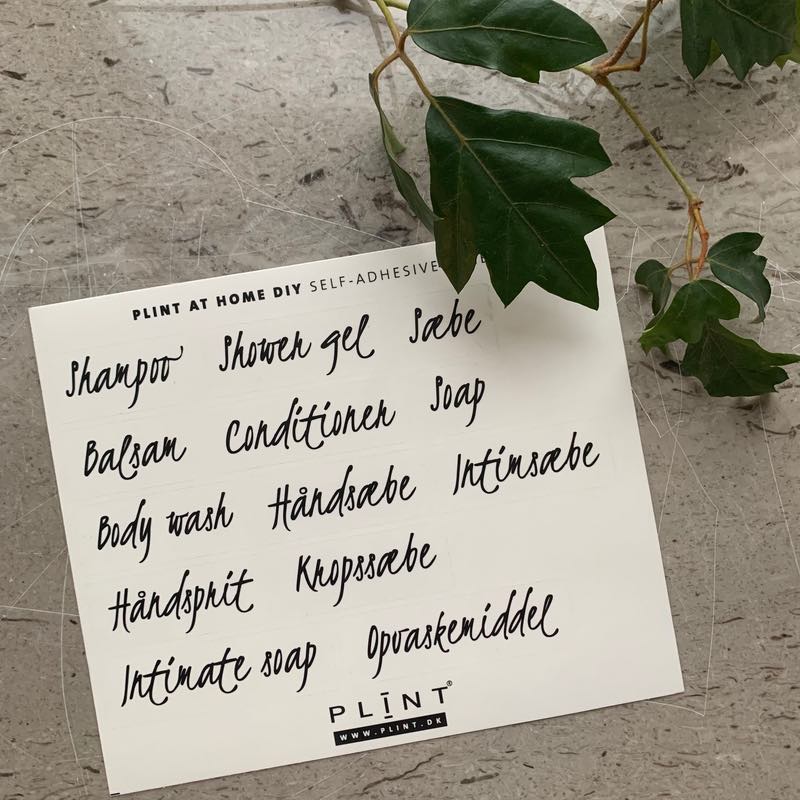 PLINT AT HOME DIY SELF-ADHESIVE
Shampoo Shower gel Sæbe
Balsam Conditioner Soap
Body wash Håndsæbe Intimsæbe
Håndsprit Kropssæbe
Intimate soap Opvaskemiddel
PLINT®
WWW.PLINT.DK